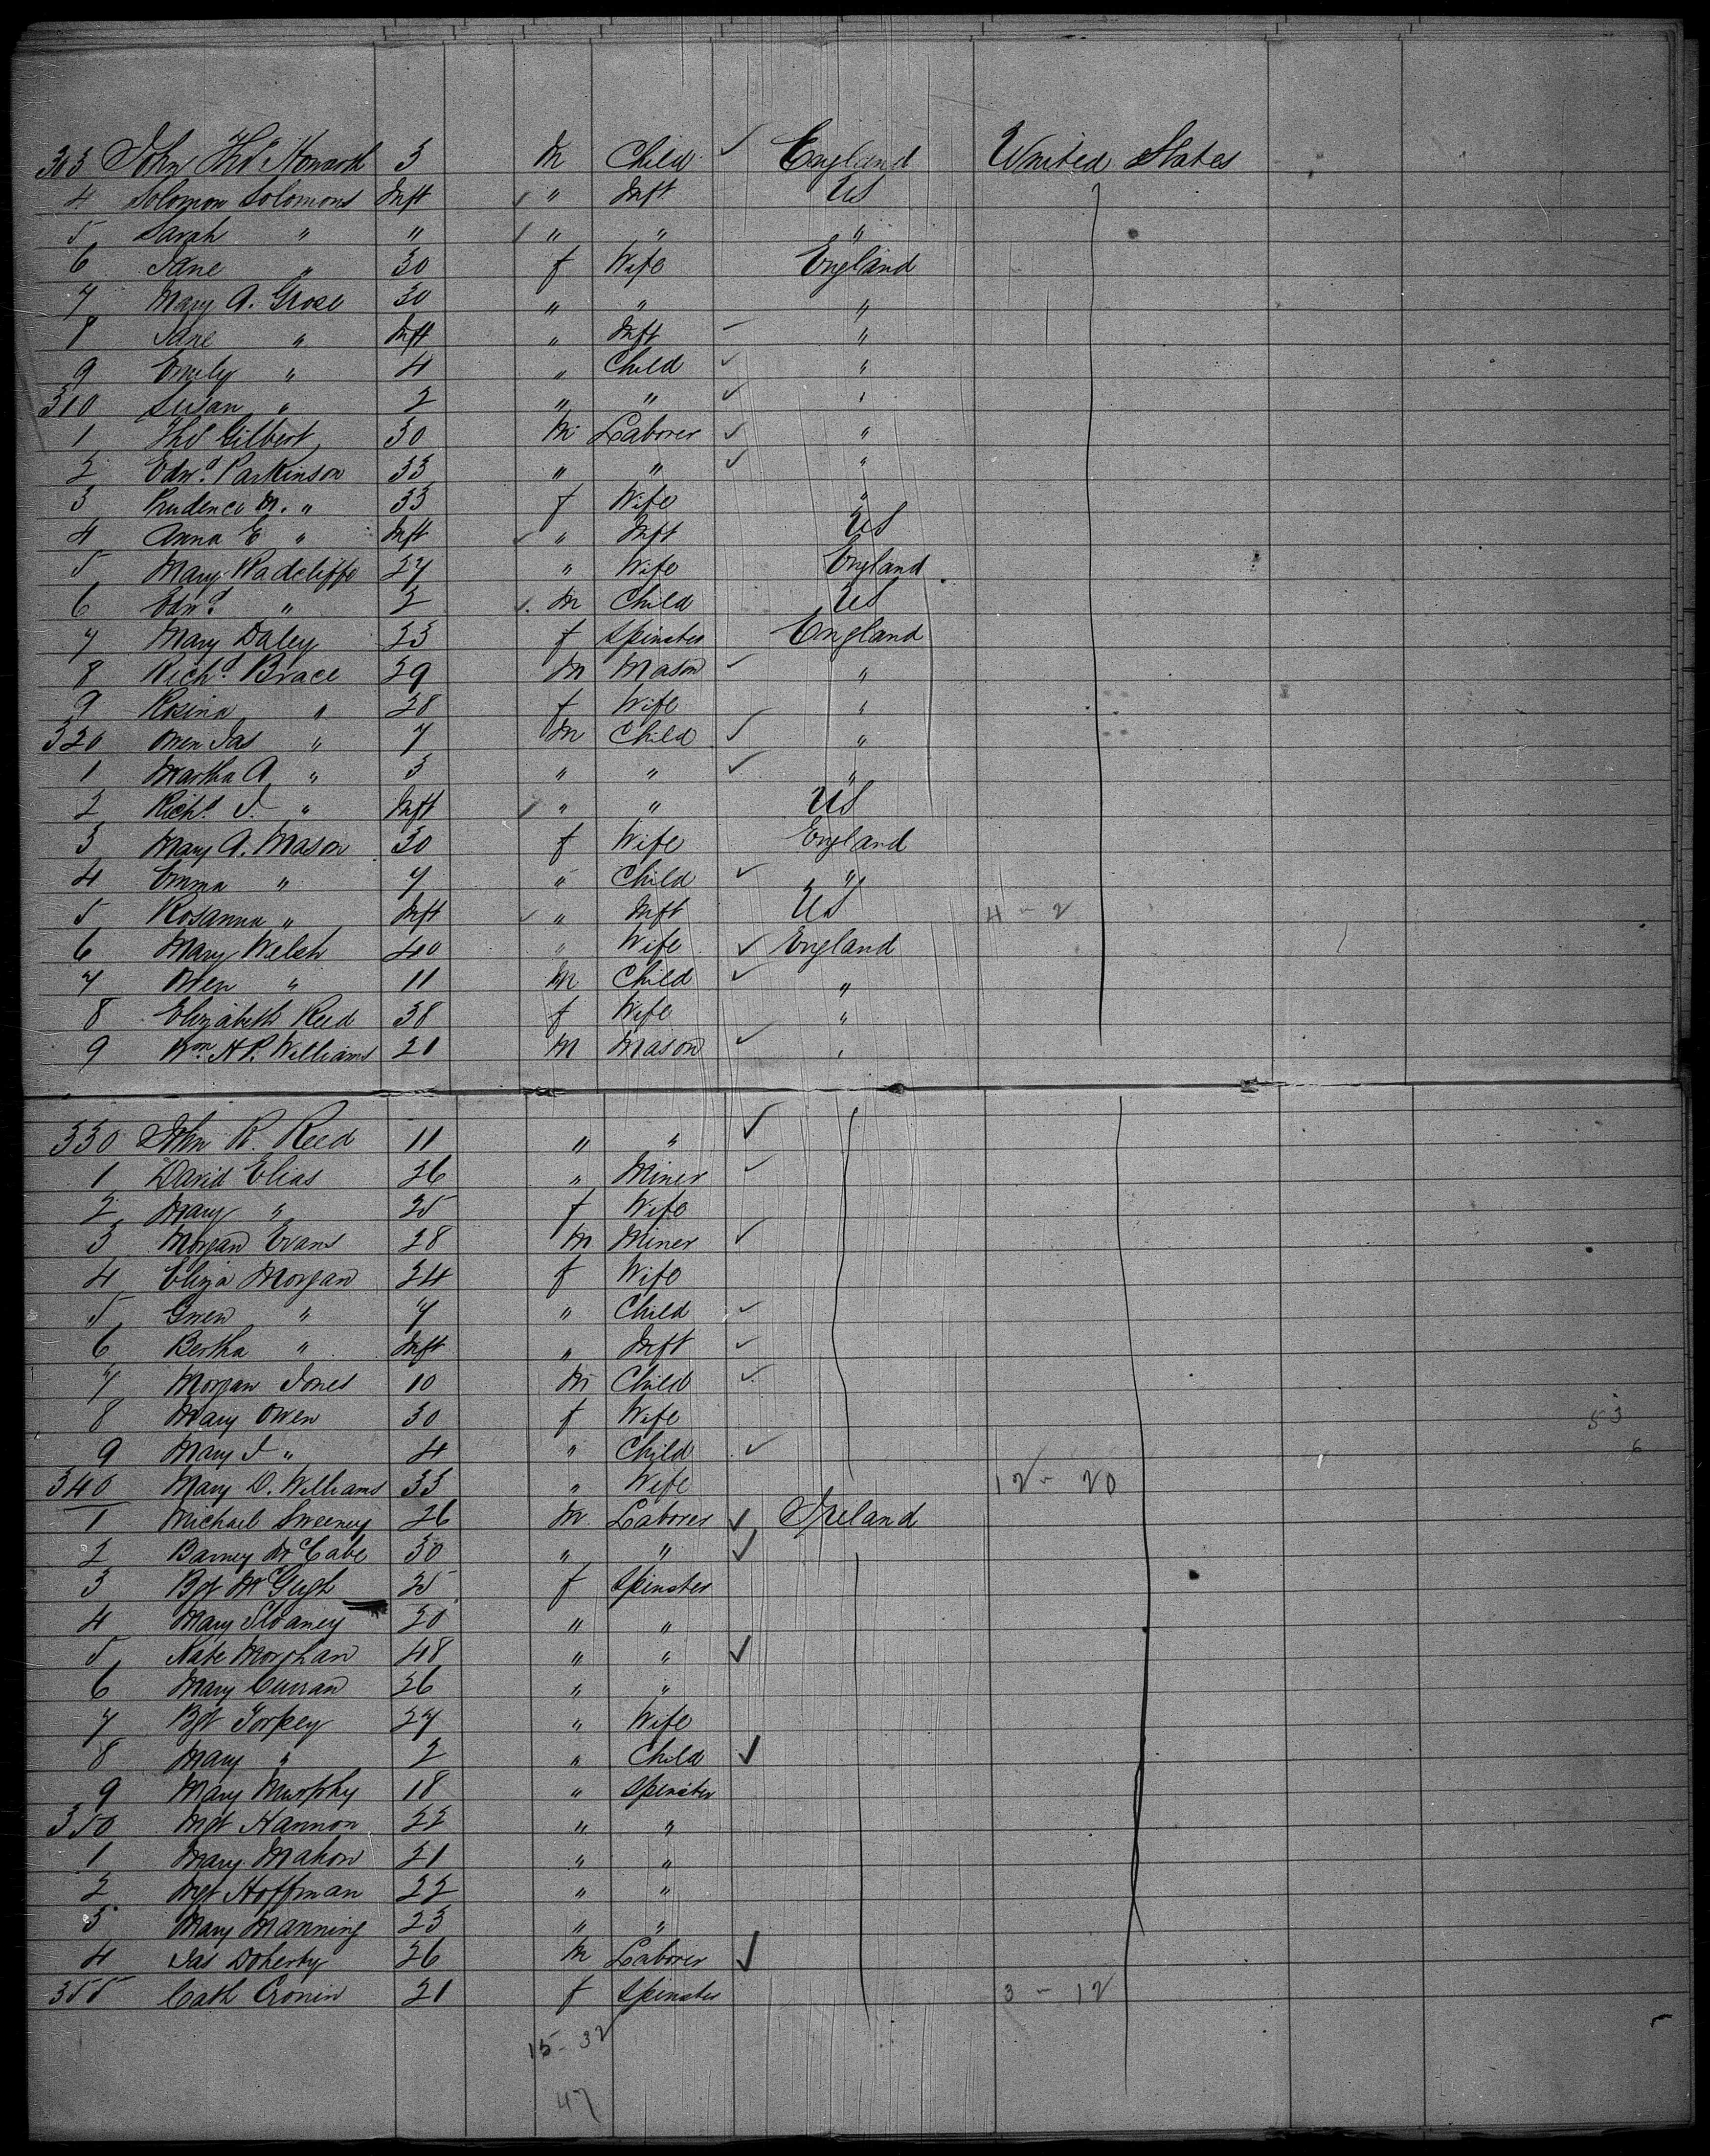 303 John Thos Howarth 3 M Child ✓ England United States
4 Solomon Solomons Inft ✓ " Inft US
5 Sarah " " ✓ " " "
6 Jane " 30 f Wife England
7 Mary A. Grose 30 " " "
8 Jane " Inft " Inft "
9 Emily " 4 " Child ✓ "
310 Susan " 2 " " ✓ "
1 Thos Gilbert 30 M Laborer ✓ "
2 Edwd Parkinson 33 " " ✓ "
3 Prudence M. " 33 f Wife "
4 Anna E " Inft ✓ " Inft US
5 Mary Radcliffe 27 " Wife England
6 Edwd " 2 ✓ M Child US
7 Mary Daley 23 f Spinster England
8 Richd Brace 29 M Mason ✓ "
9 Rosina " 28 f Wife "
320 Owen Jas " 7 M Child ✓ "
1 Martha A " 3 " " ✓ "
2 Richd J. " Inft ✓ " " US
3 Mary A. Mason 30 f Wife England
4 Emma " 7 " Child ✓ "
5 Rosanna " Inft ✓ " Inft US 4 - 2
6 Mary Welsh 40 " Wife ✓ England
7 Owen " 11 M Child ✓ "
8 Elizabeth Reed 38 f Wife "
9 Wm H P. Williams 21 M Mason ✓ "
330 John R. Reed 11 " " ✓
1 David Elias 26 " Miner ✓
2 Mary " 25 f Wife
3 Morgan Evans 28 M Miner ✓
4 Eliza Morgan 24 f Wife
5 Gwen " 7 " Child ✓
6 Bertha " Inft " Inft ✓
7 Morgan Jones 10 M Child ✓
8 Mary Owen 30 f Wife 53
9 Mary J " 4 " Child ✓ 6
340 Mary D. Williams 33 " Wife 12 - 20
1 Michael Sweeney 26 M Laborer ✓ Ireland
2 Barney McCabe 30 " " ✓
3 Bgt McGugh 25 f Spinster
4 Mary 20 " "
5 Kate Morghan 48 " " ✓
6 Mary Curran 26 " "
7 Bgt Torpey 27 " Wife
8 Mary " 2 " Child ✓
9 Mary Murphy 18 " Spinster
350 Mgt Hannon 22 " "
1 Mary Mahon 21 " "
2 Mgt Hoffman 22 " "
3 Mary Manning 23 " "
4 Jas Doherty 26 M Laborer ✓
355 Cath Cronin 21 f Spinster 3 - 12
15 - 32
47